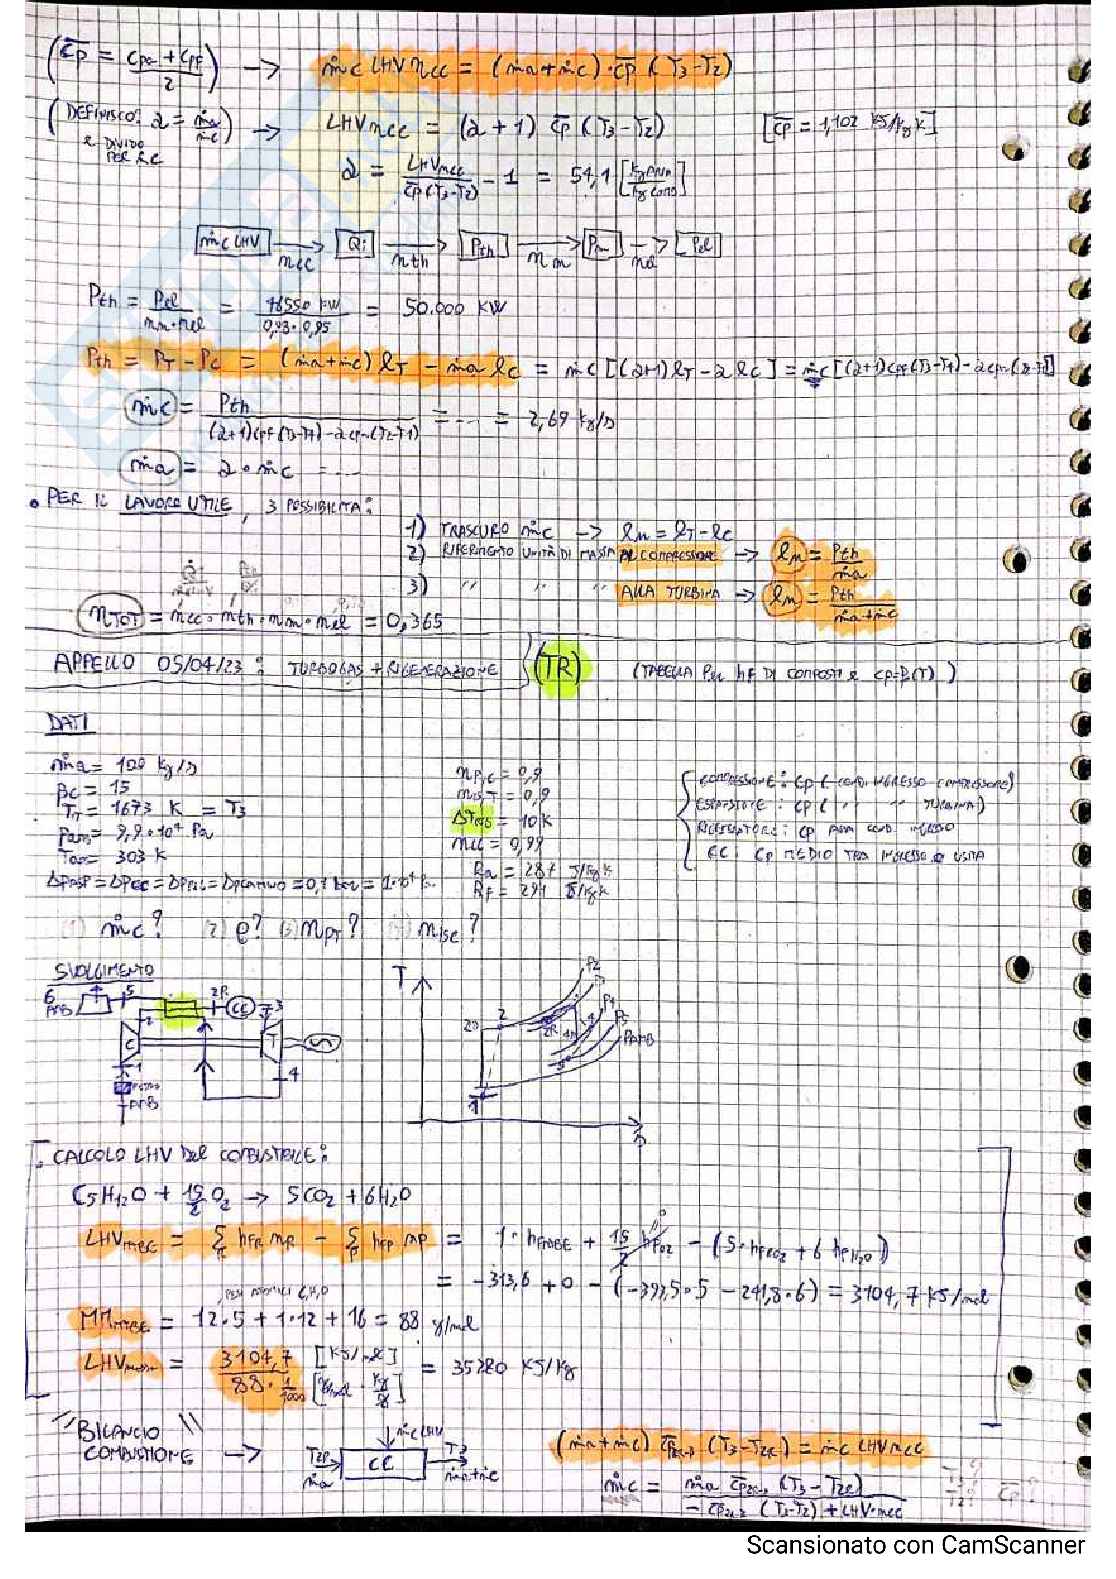 (c̄p = (cpa + cpf)/2) → ṁc LHV ηcc = (ṁa + ṁc) · c̄p (T3 - T2)
(DEFINISCO: α = ṁa/ṁc) → LHV ηcc = (α + 1) c̄p (T3 - T2) [c̄p = 1,102 kJ/kg K]
e DIVIDO
PER ṁc
α = LHV ηcc / (c̄p (T3 - T2)) - 1 = 54,1 [kg aria / kg comb]
ṁc LHV → ηcc Qi → ηth Pth → ηm Pm → ηel Pel
Pth = Pel / (ηm · ηel) = 46550 kW / (0,98 · 0,95) = 50.000 kW
Pth = PT - Pc = (ṁa + ṁc) lT - ṁa lc = ṁc [(α+1) lT - α lc] = ṁc [(α+1) cpf (T3-T4) - α cpa (T2-T1)]
ṁc = Pth / ((α+1) cpf (T3-T4) - α cpa (T2-T1)) = ... = 2,69 kg/s
ṁa = α · ṁc = ...
• PER IL LAVORO UTILE, 3 POSSIBILITÀ:
1) TRASCURO ṁc → lu = lT - lc
2) RIFERIMENTO UNITÀ DI MASSA AL COMPRESSORE → lu = Pth / ṁa
3) " " " ALLA TURBINA → lu = Pth / (ṁa + ṁc)
ηTOT = ηcc · ηth · ηm · ηel = 0,365
APPELLO 05/04/23: TURBOGAS + RIGENERAZIONE (TR) (TABELLA PER hf DI COMPOSTI e cp=f(T))
DATI
ṁa = 100 kg/s
βc = 15
TIT = 1673 K = T3
Pamb = 9,9 · 10⁴ Pa
Tamb = 303 K
ΔPASP = ΔPCC = ΔPRIG = ΔPCAMINO = 0,1 bar = 1·10⁴ Pa
ηp,c = 0,9
ηis,T = 0,9
ΔTRIG = 10 K
ηcc = 0,99
Ra = 287 J/kg K
Rf = 291 J/kg K
COMPRESSIONE: cp (COND. INGRESSO COMPRESSORE)
ESPANSIONE: cp ( " " TURBINA)
RIGENERATORE: cp ARIA COND. INGRESSO
CC: cp MEDIO TRA INGRESSO e USCITA
1) ṁc? 2) e? 3) ηpT? 4) ηisc?
SVOLGIMENTO
6 AMB 5 2R CC 3
2 C T
1 4
FILTRO
AMB
T P2 P3 P4 P5 PAMB
2is 2 2R 4is 4 5
1
CALCOLO LHV DEL COMBUSTIBILE:
C5H12O + 15/2 O2 → 5CO2 + 6H2O
LHVMTBE = Σ hfR nR - Σ hfP nP = 1 · hfMTBE + 15/2 hfO2 - (5 · hfCO2 + 6 hfH2O)
= -313,6 + 0 - (-393,5 · 5 - 241,8 · 6) = 3104,7 kJ/mol
MMMTBE = 12 · 5 + 1 · 12 + 16 = 88 g/mol
LHVmass = 3104,7 / (88 · 1/1000) [kJ/mol] / [g/mol · kg/g] = 35280 kJ/kg
"BILANCIO
COMBUSTIONE" →
ṁc LHV
T2R ṁa CC T3 ṁa+ṁc
(ṁa + ṁc) c̄p2R-3 (T3 - T2R) = ṁc LHV ηcc
ṁc = ṁa c̄p2R-3 (T3 - T2R) / (-c̄p2R-3 (T3 - T2) + LHV · ηcc) T3? T2? c̄p?
Scansionato con CamScanner